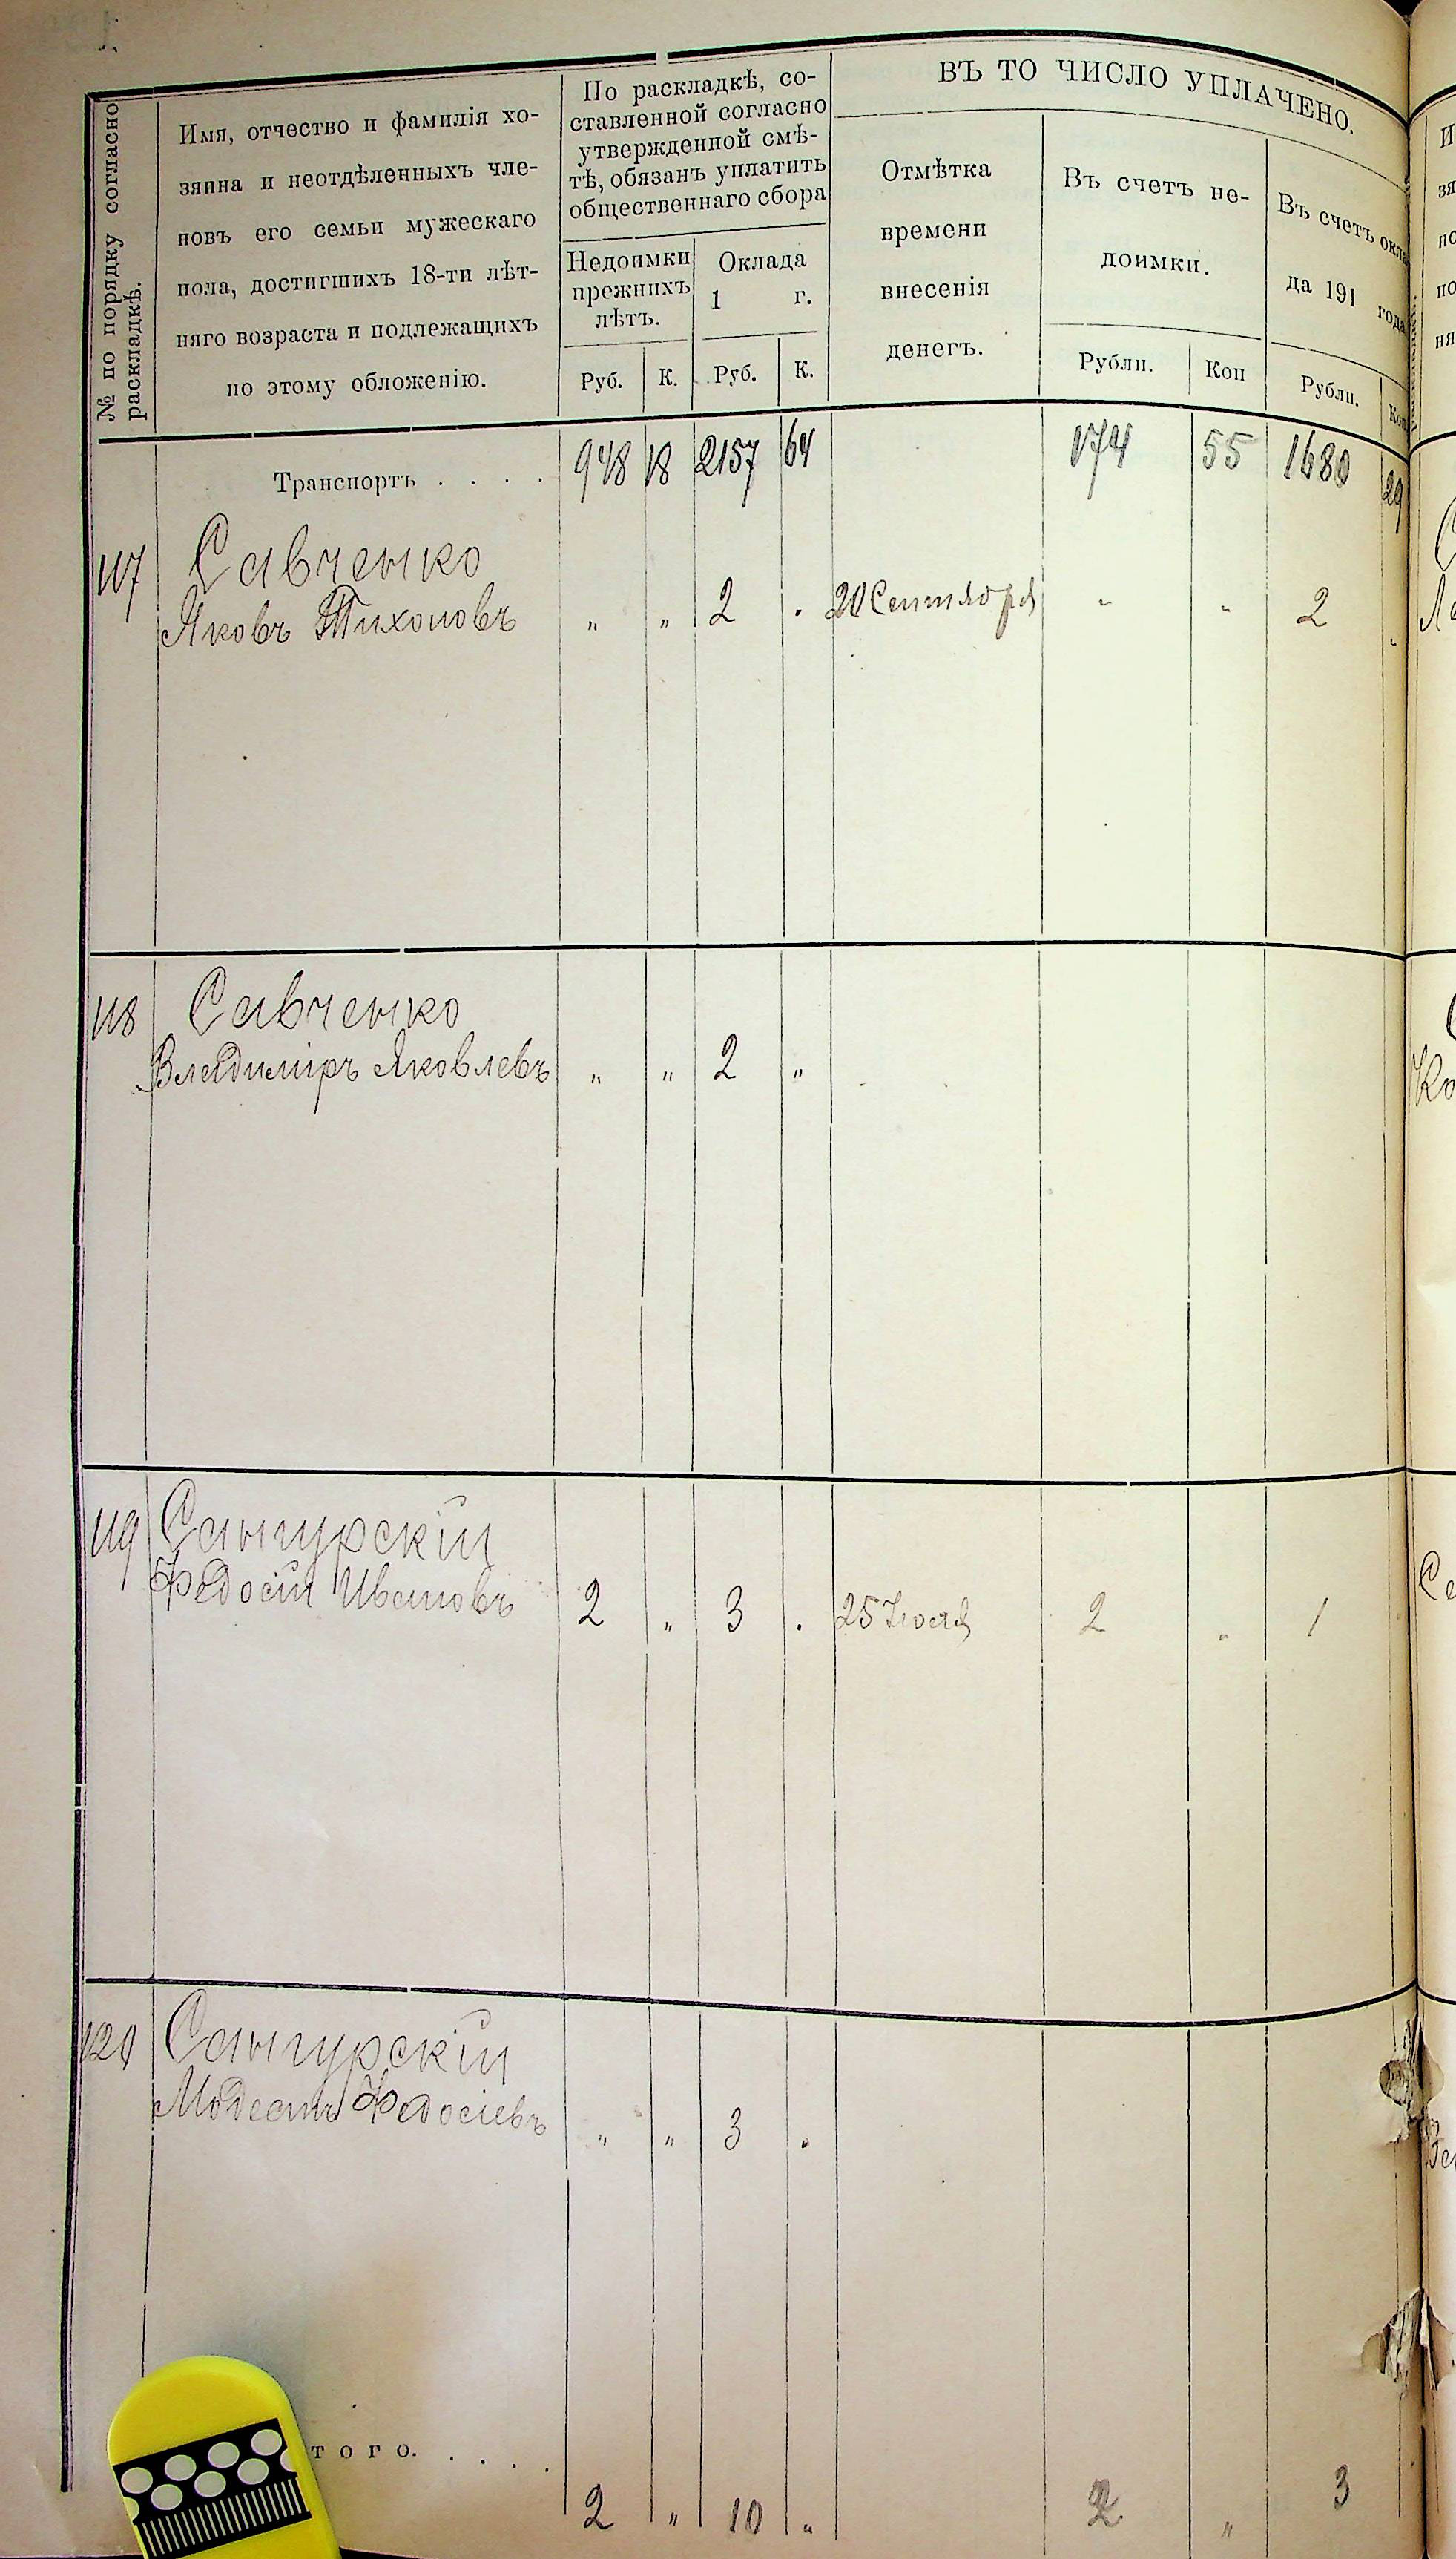 № по порядку согласно
раскладкѣ.
Имя, отчество и фамилія хо-
зяина и неотдѣленныхъ чле-
новъ его семьи мужескаго
пола, достигшихъ 18-ти лѣт-
няго возраста и подлежащихъ
по этому обложенію.
По раскладкѣ, со-
ставленной согласно
утвержденной смѣ-
тѣ, обязанъ уплатить
общественнаго сбора
Недоимки
прежнихъ
лѣтъ.
Оклада
1 г.
Руб. К. Руб. К.
ВЪ ТО ЧИСЛО УПЛАЧЕНО.
Отмѣтка
времени
внесенія
денегъ.
Въ счетъ не-
доимки.
Рубли. Коп
Въ счетъ окла
да 191 года
Рубли. Коп
Транспортъ . . . . 948 18 2157 64 174 55 1680 29
117 Савченко
Яковъ Тихоновъ „ „ 2 . 20 Сентября „ „ 2 „
118 Савченко
Владиміръ Яковлевъ „ „ 2 „
119 Сангурскій
Федосій Ивановъ 2 „ 3 . 25 Іюля 2 „ 1
120 Сангурскій
Модестъ Федосіевъ „ „ 3 .
того. . . . . 2 „ 10 „ 2 „ 3